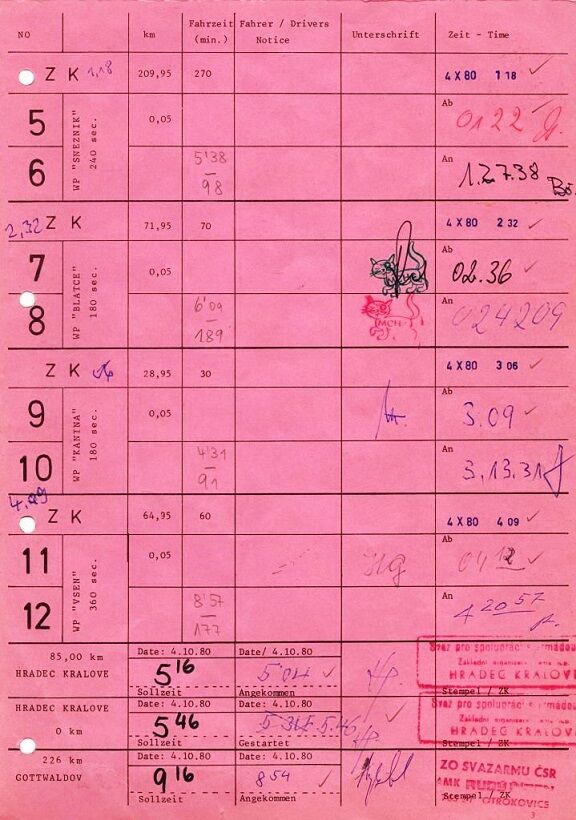 NO km Fahrzeit (min.) Fahrer / Drivers Notice Unterschrift Zeit - Time
Z K 1,18 209,95 270 4 X 80 1 18
5 0,05 Ab 0122
WP "SNEZNIK" 240 sec.
6 5'38 98 An 1.27.38
2,32 Z K 71,95 70 4 X 80 2 32
7 0,05 Ab 02.36
WP "BLATCE" 180 sec.
8 6'09 189 MCH An 024209
Z K 28,95 30 4 X 80 3 06
9 0,05 Ab 3.09
WP "KANINA" 180 sec.
10 4'31 91 An 3.13.31
4.09
Z K 64,95 60 4 X 80 4 09
11 0,05 Ab 0412
WP "VSEN" 360 sec.
12 8'57 177 An 4 20 57
85,00 km Date: 4.10.80 Date/ 4.10.80
HRADEC KRALOVE 5 16 5 04 HRADEC KRALOVE
Sollzeit Angekommen Stempel / ZK
HRADEC KRALOVE Date: 4.10.80 Date: 4.10.80
0 km 5 46 5.46 HRADEC KRALOVE
Sollzeit Gestartet Stempel / ZK
226 km Date: 4.10.80 Date: 4.10.80 ZO SVAZARMU ČSR
GOTTWALDOV 9 16 8 54 AMK
Sollzeit Angekommen Stempel / ZK OTROKOVICE
3